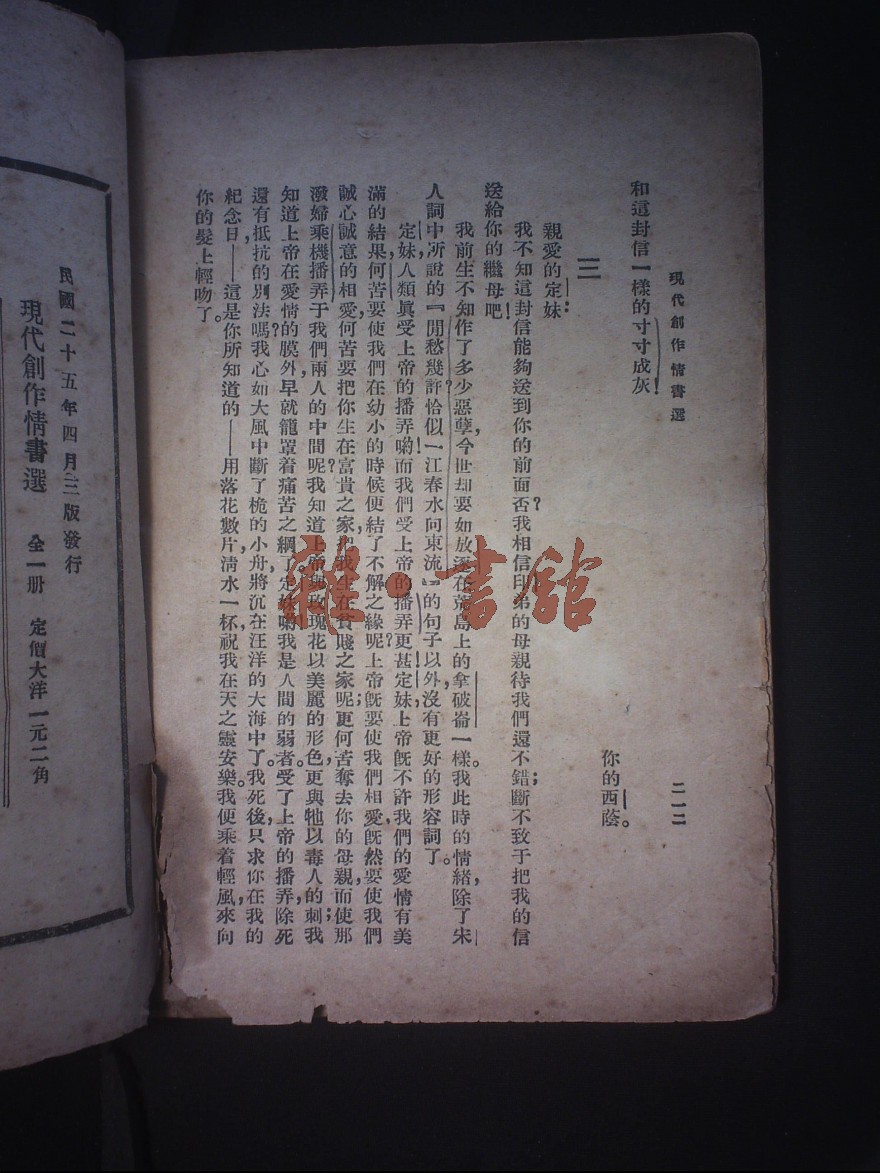 現代創作情書選
二一二
和這封信一樣的寸寸成灰!
你的西蔭。
三
親愛的定妹:
我不知這封信能夠送到你的前面否?我相信印弟的母親待我們還不錯;斷不致于把我的信
送給你的繼母吧!
我前生不知作了多少惡孽,今世却要如放逐在荒島上的拿破崙一樣。我此時的情緒,除了宋
人詞中所說的『閒愁幾許?恰似一江春水向東流』的句子以外,沒有更好的形容詞了。
定妹,人類眞受上帝的播弄喲!而我們受上帝的播弄更甚!定妹,上帝旣不許我們的愛情有美
滿的結果,何苦要使我們在幼小的時候便結了不解之緣呢?上帝旣要使我們相愛,旣然要使我們
誠心誠意的相愛,何苦要把你生在富貴之家,把我生在貧賤之家呢;更何苦奪去你的母親,而使那
潑婦乘機播弄于我們兩人的中間呢?我知道上帝與玫瑰花以美麗的形色,更與牠以毒人的刺;我
知道上帝在愛情的膜外,早就籠罩着痛苦之網了。定妹喲!我是人間的弱者。受了上帝的播弄,除死
還有抵抗的別法嗎?我心如大風中斷了桅的小舟,將沉在汪洋的大海中了。我死後,只求你在我的
紀念日——這是你所知道的——用落花數片,清水一杯,祝我在天之靈安樂。我便乘着輕風,來向
你的髮上輕吻了。
民國二十五年四月三版發行
現代創作情書選 全一册 定價大洋一元二角
雜·書館